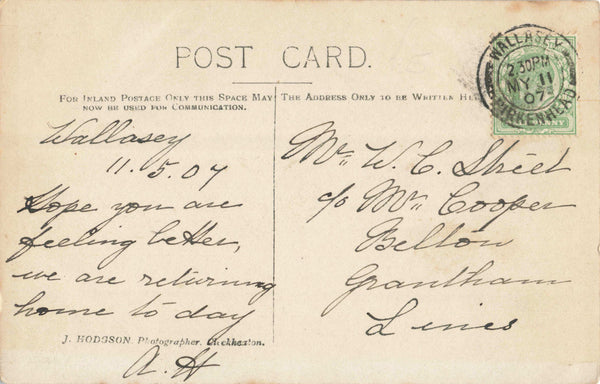 POST CARD.
WALLASEY
2.30PM
MY 11
07
BIRKENHEAD
FOR INLAND POSTAGE ONLY THIS SPACE MAY
NOW BE USED FOR COMMUNICATION.
THE ADDRESS ONLY TO BE WRITTEN HE
Wallasey
11.5.07
Hope you are
feeling better,
we are returning
home to day
A.H
J. HODGSON, Photographer, Cleckheaton.
W. C. Street
c/o Cooper
Belton
Grantham
Lincs